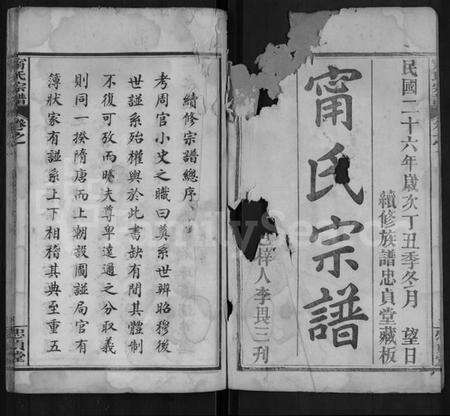 民國二十六年歲次丁丑季冬月　望日
續修族譜忠貞堂藏板
甯氏宗譜
梓人李畏三刋
續修宗譜總序
考周官小史之職曰奠系世辨昭穆後
世諡系殆權輿於此書缺有間其體制
不復可攷而時夫尊卑遠邇之分取義
則同一揆隋唐而上朝設圖諡局官有
簿狀家有諡系上下相稽其典至重五
甯氏宗譜
卷之
忠貞堂
FamilySearch